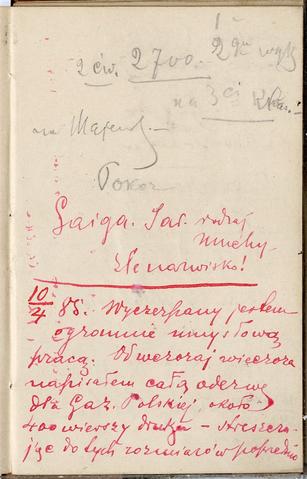 2 ćw. 2700.
na 3ci
Pokor
Gaiga. Jak. rodzaj
muchy.
Złe nazwisko!
10/4 85. Wyczerpany jestem
ogromnie umysłową
pracą. Od wczoraj wieczora
napisałem całą odezwę
dla Gaz. Polskiej, około
400 wierszy druku – streszcza-
jąc do tych rozmiarów poprzednio